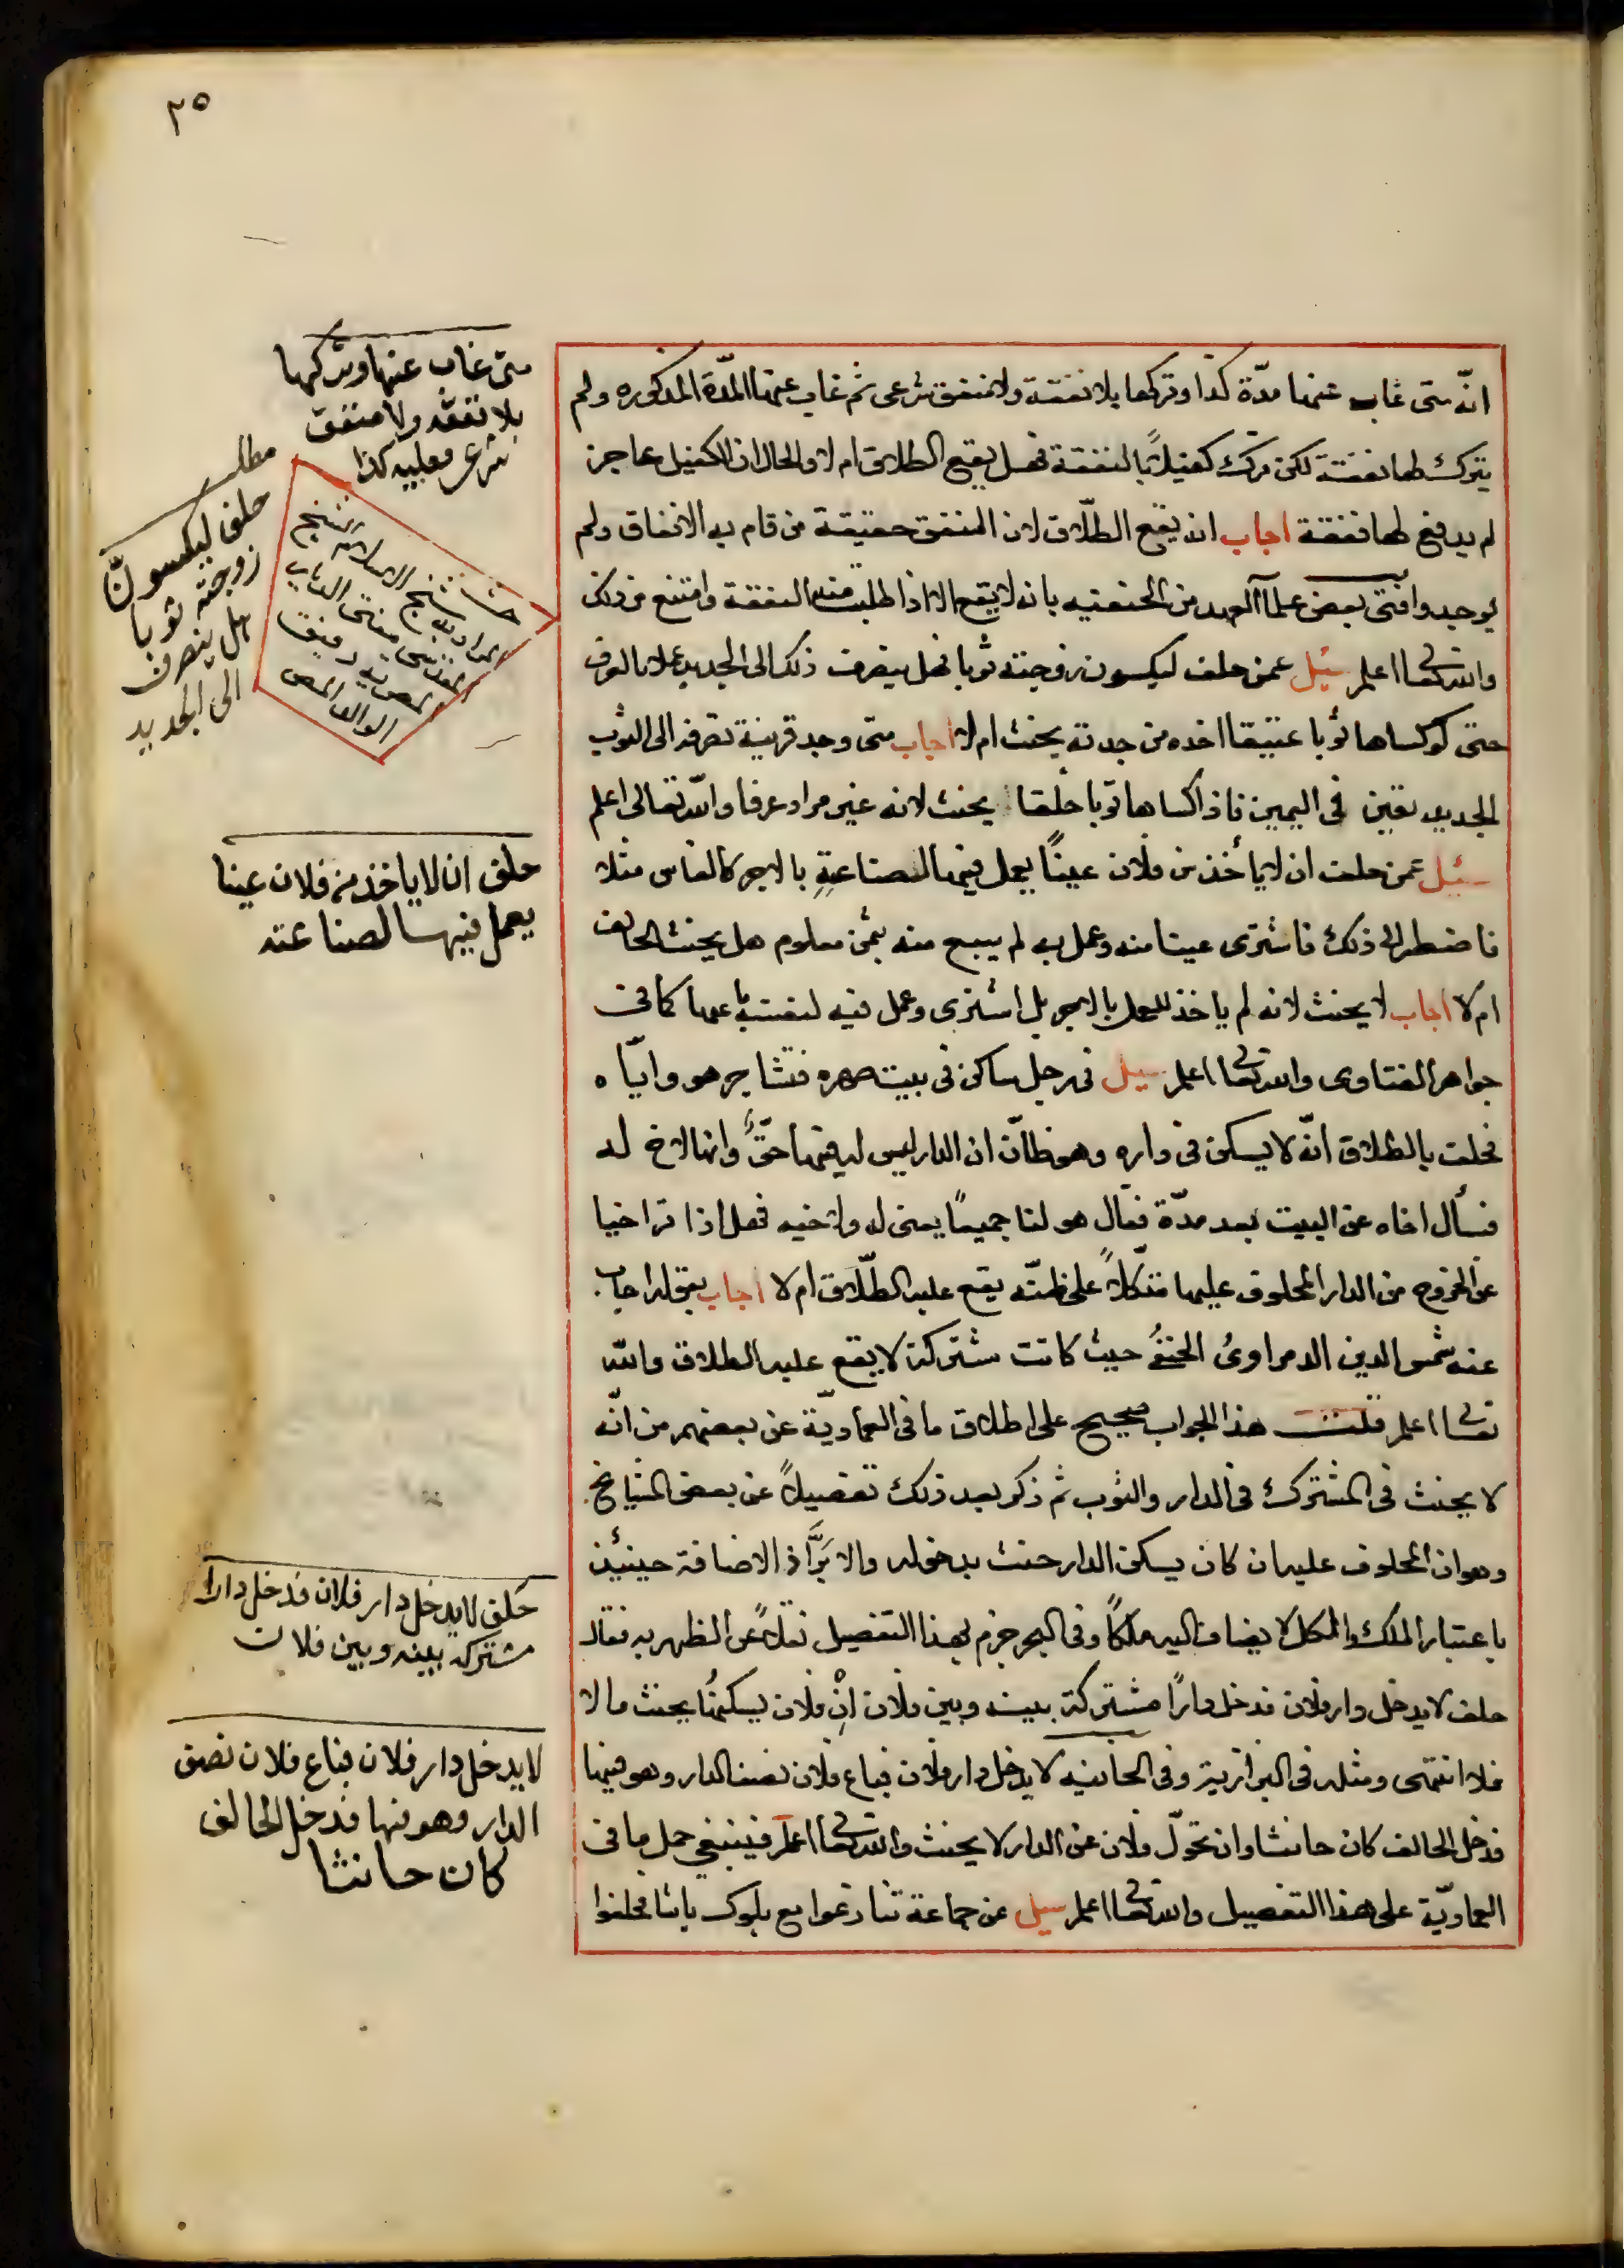 ٢٥
انّه متى غاب عنها مدّة كذا وتركها بلا نفقة ولا منفق شرعى ثم غاب عنها المدّة المذكوره ولم
يترك لها نفقة لكن ترك كفيلاً بالنفقة فهل يقع الطلاق ام لا والحال ان الكفيل عاجز
لم يدفع لها نفقة اجاب انه يقع الطلاق لان المنفق حقيقة من قام به الانفاق ولم
يوجد وافتى بعض علمآ العهد من الحنفيه بانه لا يقع الا اذا طلبت منه النفقة وامتنع من ذلك
والله تعالى اعلم سئل عمن حلف ليكسون زوجته ثوبا فهل يصرف ذلك الى الجديد عملا بالعرف
حتى لو كساها ثوبا عتيقا اخذه من جدته يحنث ام لا اجاب متى وجد قرينة تصرفه الى الثوب
الجديد تعين فى اليمين فاذا كساها ثوبا خلقا يحنث لانه غير مراد عرفا والله تعالى اعلم
سئل عمن حلف ان لا يأخذ من فلان عينًا يعمل فيها الصناعة بالاجر كالفاس مثلا
فاضطر الى ذلك فاشترى عينا منه وعمل به لم يبيع منه بثمن معلوم هل يحنث الحالف
ام لا اجاب لا يحنث لانه لم ياخذ للعمل بالاجر بل اشترى وعمل فيه لنفسه باعها كما فى
جواهر الفتاوى والله تعالى اعلم سيل فى رجل ساكن فى بيت صهره فتشاجر هو واياه
فحلف بالطلاق انّه لا يسكن فى داره وهو ظانّ ان الدار ليس له فيها حقّ وانها لاخ له
فسأل اخاه عن البيت بعد مدّة فقال هو لنا جميعًا يعنى له ولاخيه فهل اذا تراخيا
عن الخروج من الدار المحلوف عليها متكلاً على ظنّه يقع عليه الطلاق ام لا اجاب بقوله اجاب
عنه شمس الدين الدمراوى الحنفى حيث كانت مشتركة لا يقع عليه الطلاق والله
تعالى اعلم قلت هذا الجواب صحيح على اطلاق ما فى العماديّة عن بعضهم من انّه
لا يحنث فى المشترك فى الدار والثوب ثم ذكر بعد ذلك تفصيلاً عن بعض المشايخ
وهو ان المحلوف عليه ان كان يسكن الدار حنث بدخوله والا برَّ اذ الاضافة حينئذ
باعتبار الملك والكل لا يضاف اليه ملكًا وفى البحر جزم بهذا التفصيل نقلاً عن الظهريه فقال
حلف لا يدخل دار فلان فدخل دارًا مشتركة بينه وبين فلان انْ فلان يسكنها يحنث مالا
فلا انتهى ومثله فى البزازية وفى الخانيه لا يدخل دار فلان فباع فلان نصف الدار وهو فيها
فدخل الحالف كان حانثا وان تحوّل فلان عن الدار لا يحنث والله تعالى اعلم فينبغي حمل ما فى
العماديّة على هذا التفصيل والله تعالى اعلم سيل عن جماعة تنازعوا مع بلوك باشا فحلفوا
متى غاب عنها وتركها
بلا نفقة ولا منفق
شرعى فعليه كذا
مطلب
حلف ليكسونّ
زوجته ثوبا
هل ينصرف
الى الجديد
شيخ الاسلام الشيخ
مفتى
الوالد
حلف ان لا ياخذ من فلان عينا
يعمل فيها لصناعته
حَلف لا يدخل دار فلان فدخل دارا
مشتركه بينه وبين فلان
لا يدخل دار فلان فباع فلان نصف
الدار وهو فيها فدخل الحالف
كان حانثا